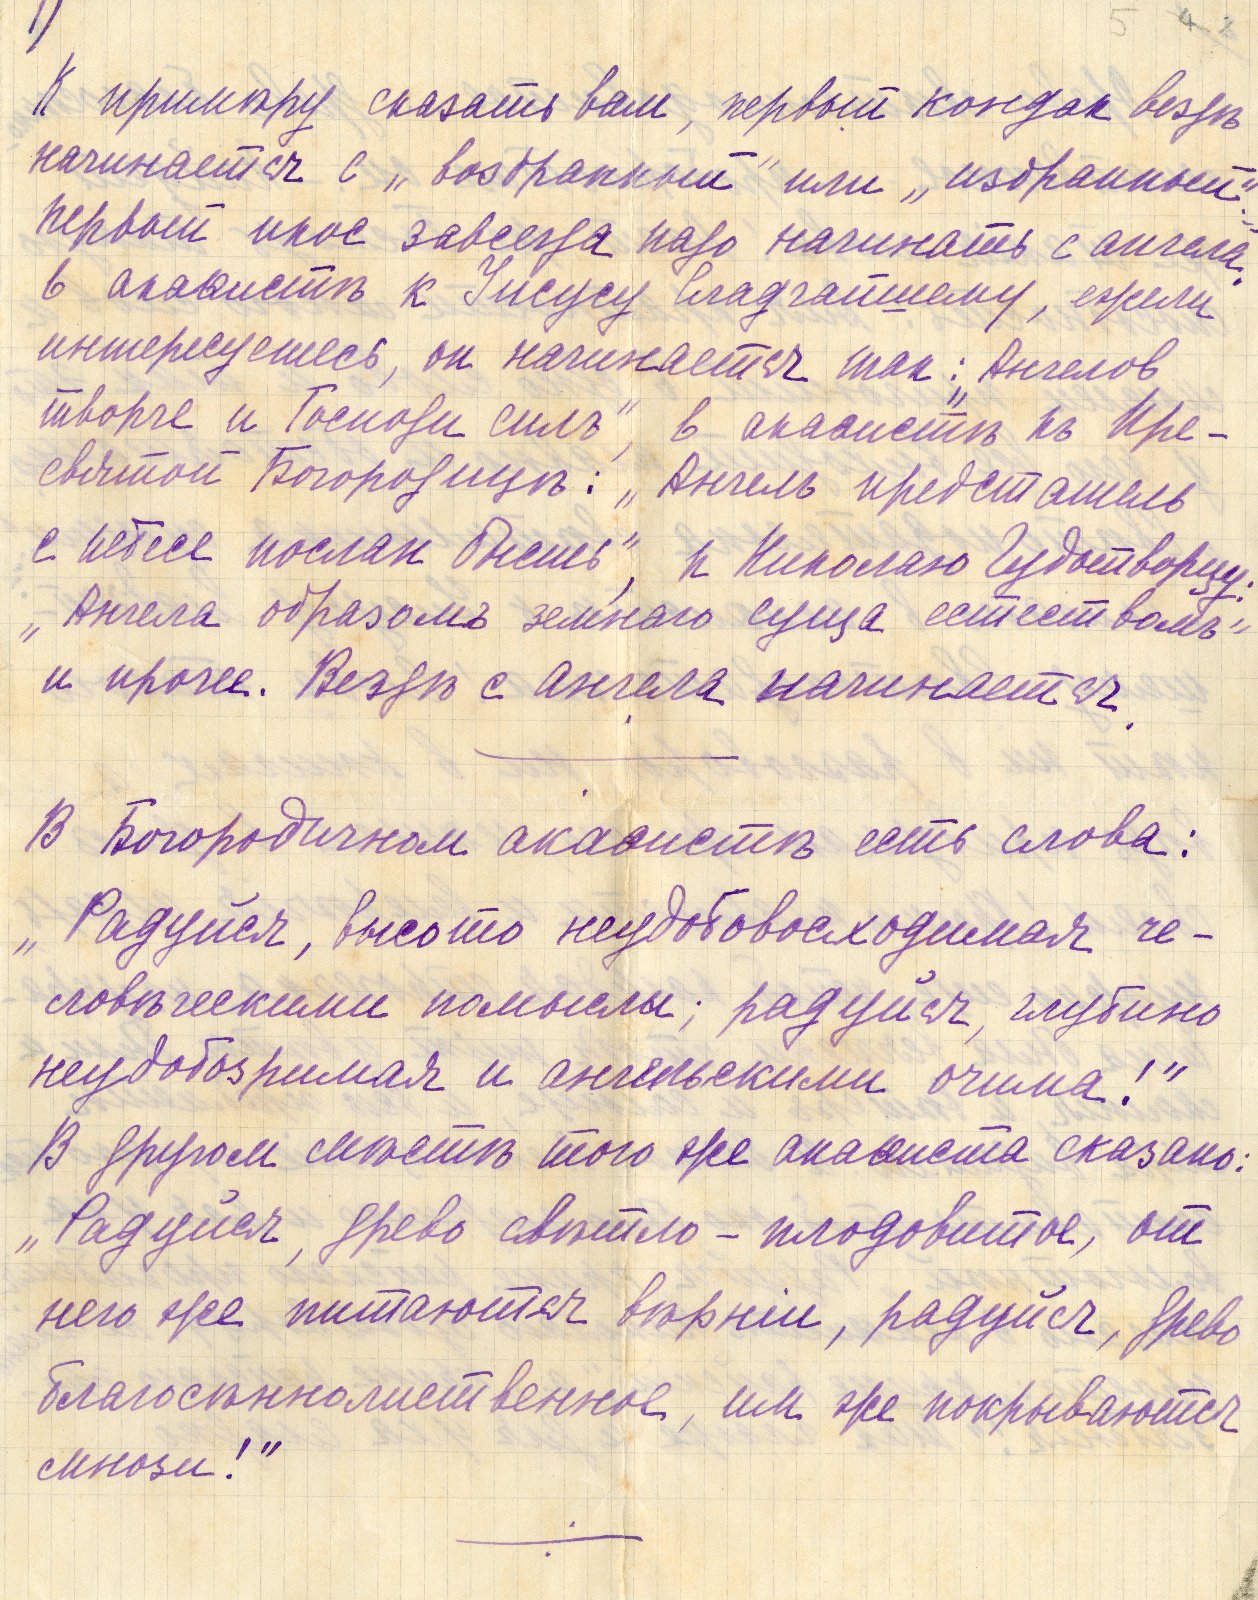 1)
5 4
К примѣру сказать вам, первый кондак вездѣ
начинается с „возбранный" или „избранный":
первый икос завсегда надо начинать с ангела.
в акаѳистѣ к Іисусу Сладчайшему, ежели
интересуетесь, он начинается так: „Ангелов
творче и Господи силъ", в акаѳистѣ къ Пре-
святой Богородицѣ: „Ангелъ предстатель
с небесе послан бысть", к Николаю Чудотворцу:
„Ангела образомъ земнаго суща естествомъ"
и прочее. Вездѣ с ангела начинается.
В Богородичном акаѳистѣ есть слова:
„Радуйся, высото неудобовосходимая че-
ловѣческими помыслы; радуйся, глубино
неудобозримая и ангельскими очима!"
В другом мѣстѣ того же акаѳиста сказано:
„Радуйся, древо свѣтло-плодовитое, от
него же питаются вѣрніи, радуйся, древо
благосѣннолиственное, им же покрываются
мнози!"